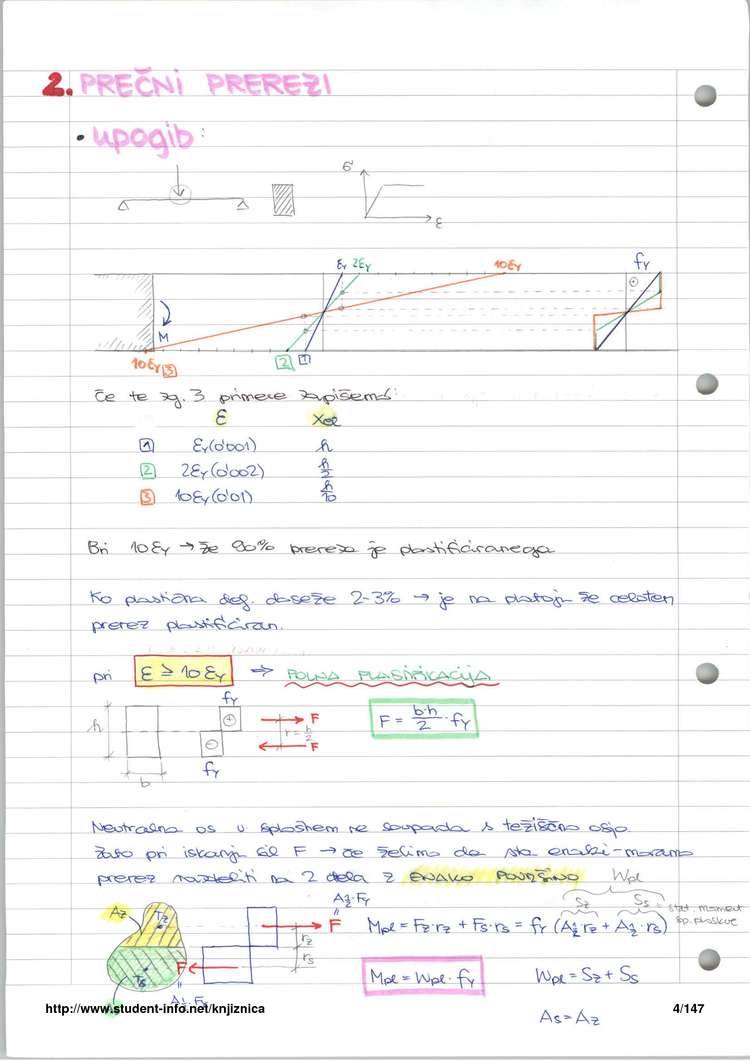 2. PREČNI PREREZI
• upogib:
σ
ε
εy 2εy 10εy fy
⊕
M
10εy 3 2 1
Če te zg. 3 primere zapišemo:
ε xel
1 εy (0'001) h
2 2εy (0'002) h/2
3 10εy (0'01) h/10
Pri 10εy → že 90% prereza je plastificiranega
Ko plastična def. doseže 2-3% → je na platoju že celoten
prerez plastificiran.
pri ε ≥ 10εy ⇒ POLNA PLASTIFIKACIJA
fy
h ⊕ F r = h/2 F = b·h/2 · fy
⊖ F
b fy
Nevtralna os v splošnem ne soupada s težiščno osjo
Zato pri iskanju sil F → če želimo da sta enaki-moramo
prerez razdeliti na 2 dela z ENAKO POVRŠINO Wpl
Az Tz Az·Fy Sz Ss = stat. moment
sp. ploskve
F rz Mpl = Fz·rz + Fs·rs = fy (Az·rz + Az·rs)
Ts F rs
Mpl = Wpl · fy Wpl = Sz + Ss
Az·Fy
As = Az
http://www.student-info.net/knjiznica 4/147